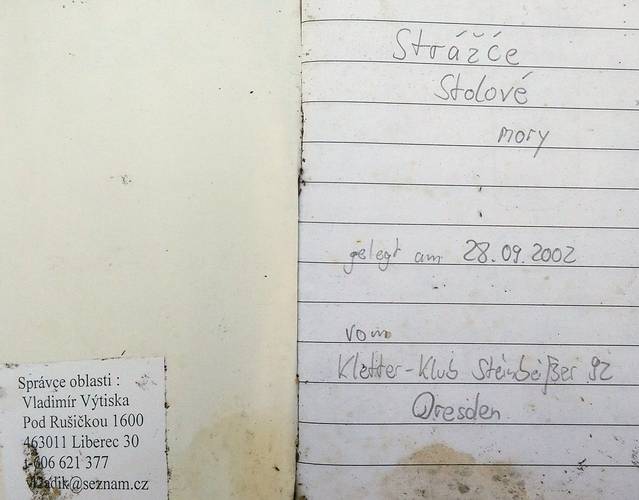 Správce oblasti :
Vladimír Výtiska
Pod Rušičkou 1600
463011 Liberec 30
606 621 377
@seznam.cz
Strážce
Stolové
mory
gelegt am 28.09.2002
vom
Kletter-Klub Steinbeißer 92
Dresden